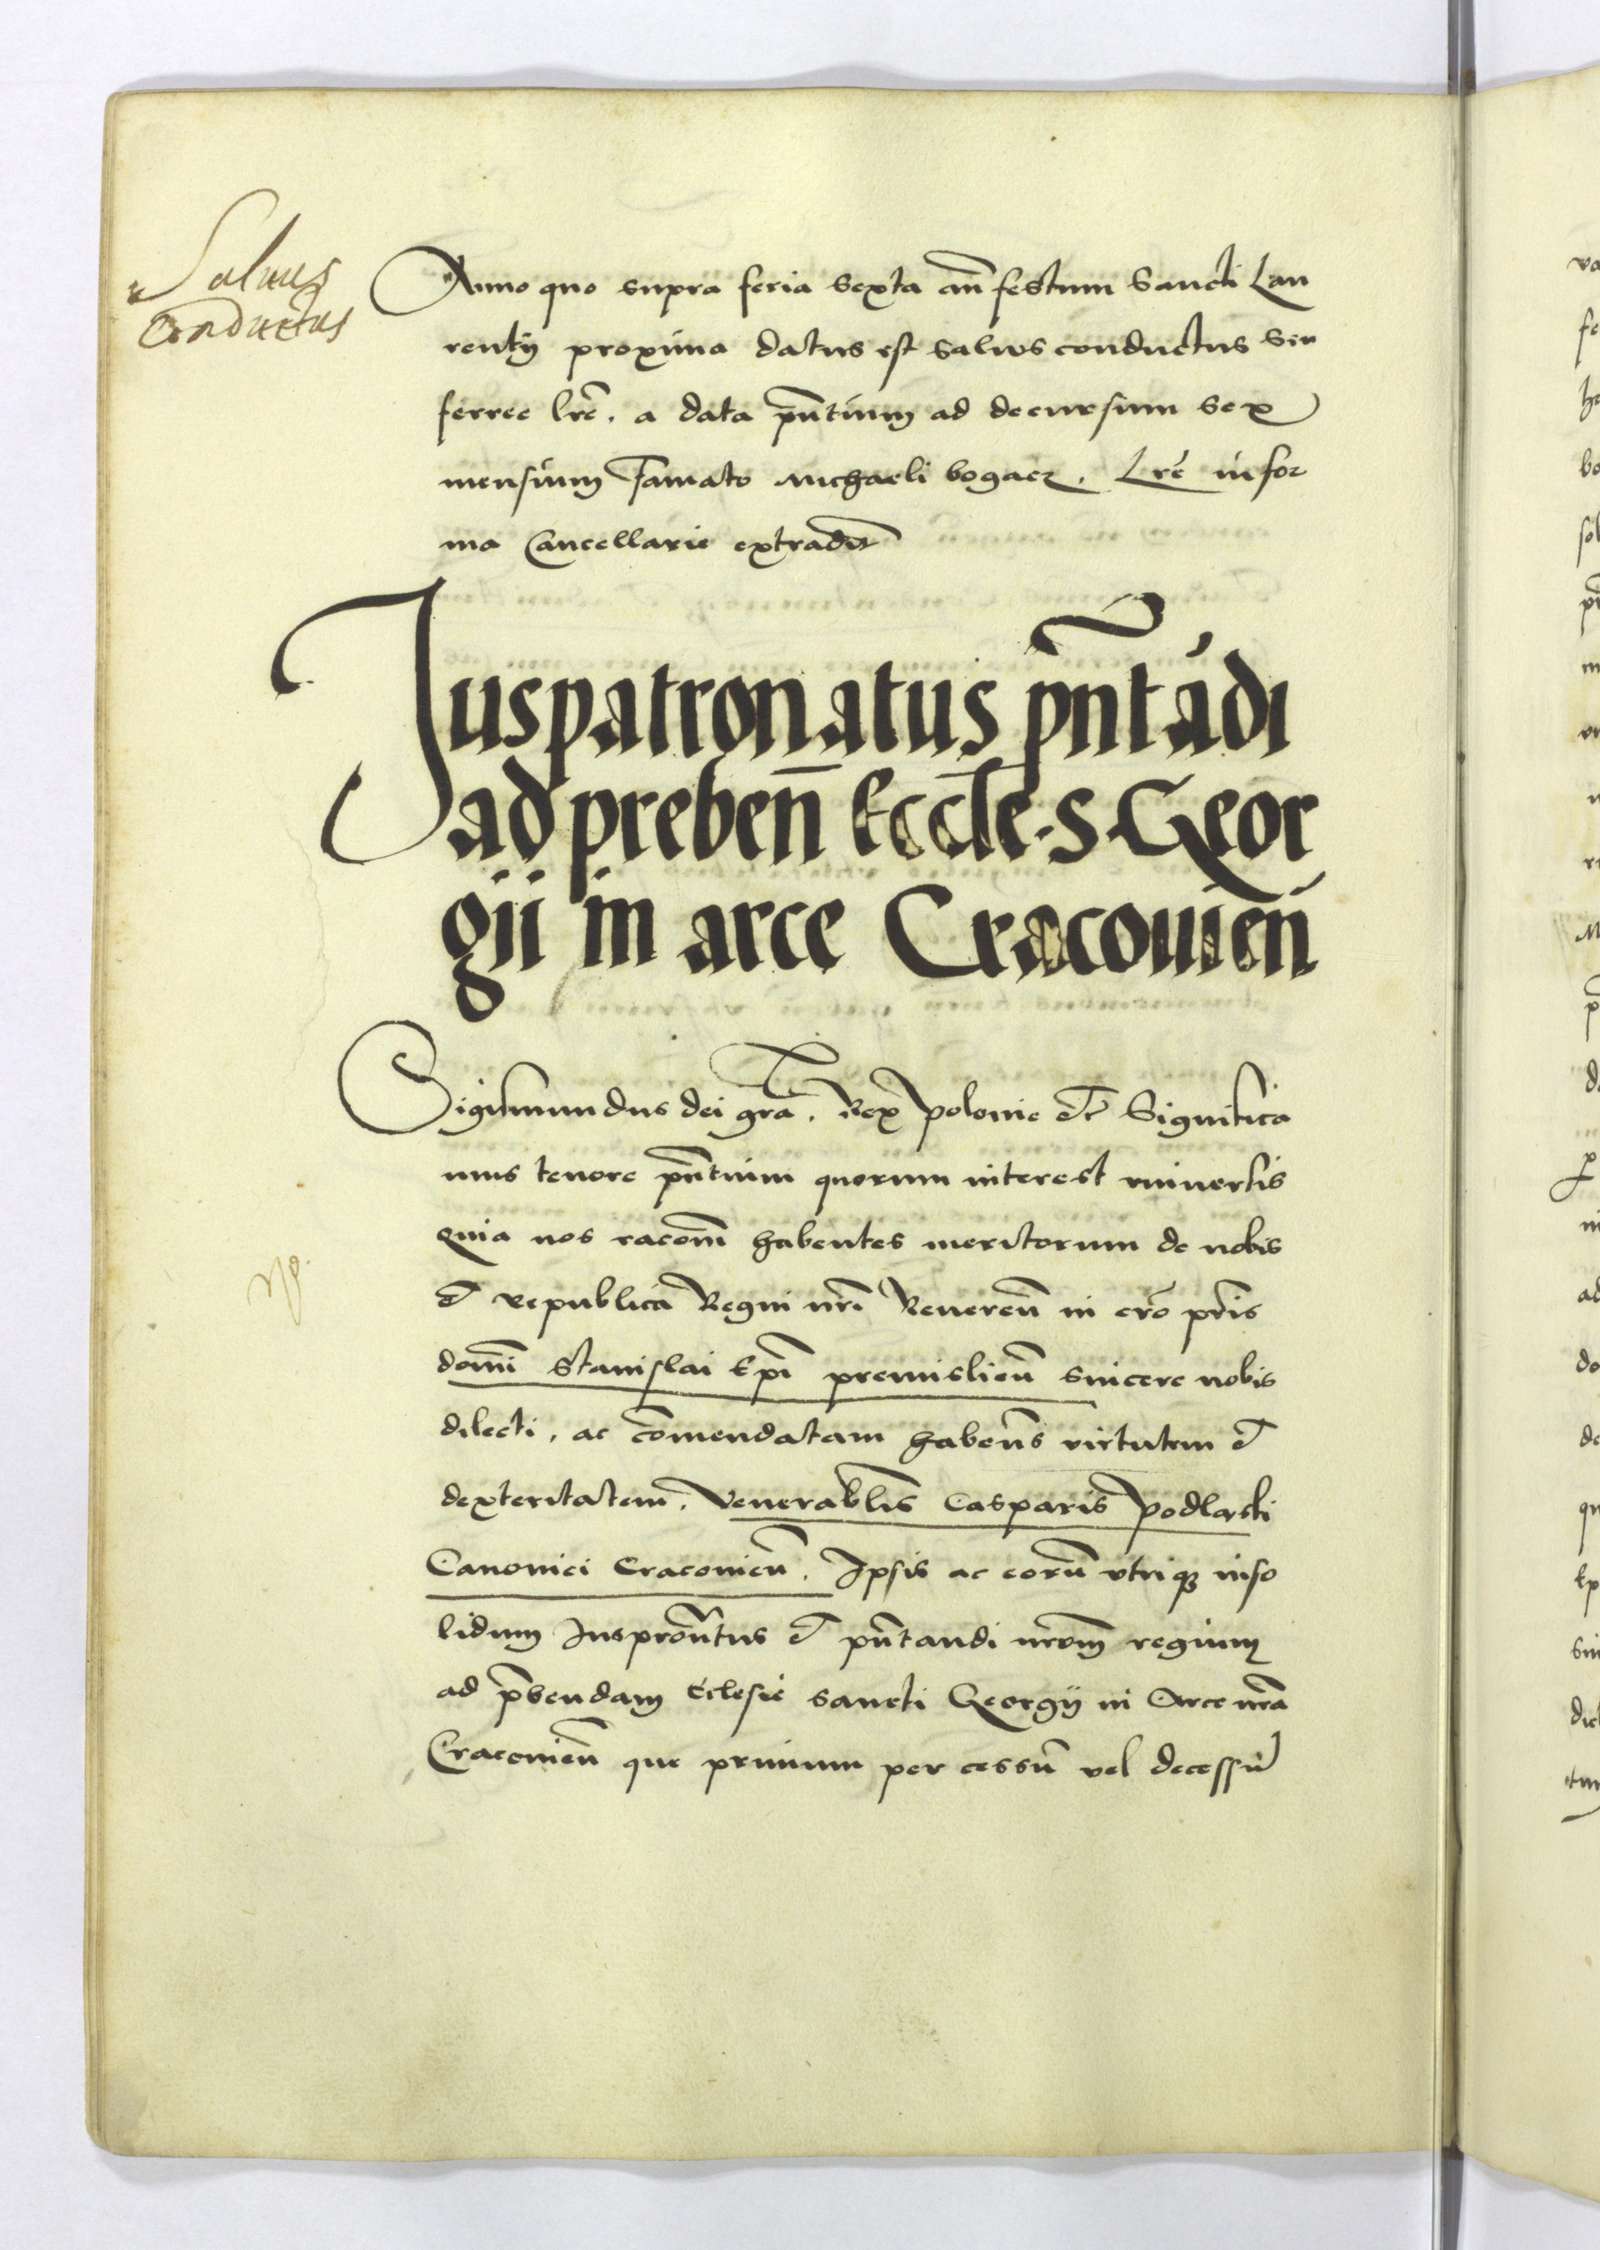 Saluus
Conductus
Anno quo supra feria sexta an̄ festum Sancti Lau
rentÿ proxima datus est saluus conductus seu
ferree lr̄e. a data pn̄tium ad decursum sex
mensium famato Michaeli bogacz. Lr̄e in for
ma Cancellarie extradit
Juspatronatus pn̄tādi
ad preben̄ Eccl̄e . S . Geor
gii in arce Cracouien̄
Sigismundus dei gr̄a. Rex Polonie et̄c Significa
mus tenore pn̄tium quorum interest vniuersis
Quia nos racon̄m habentes meritorum de nobis
et republica Regni nr̄i Reueren̄ in cr̄o pr̄is
domi̅ Stanislai Ep̄i premislien̄ sincere nobis
dilecti. ac cōmendatam haben̄s virtutem et
dexteritatem. Venerabl̄is Casparis Podlaski
Canonici Cracouien̄. Ipsis ac eorū vtriqȝ inso
lidum Juspron̄tus et pn̄tandi nr̄om regium
ad p̄bendam Eclesie sancti Georgÿ in Arce nr̄a
Cracouien̄ que primum per cessū vel decessū